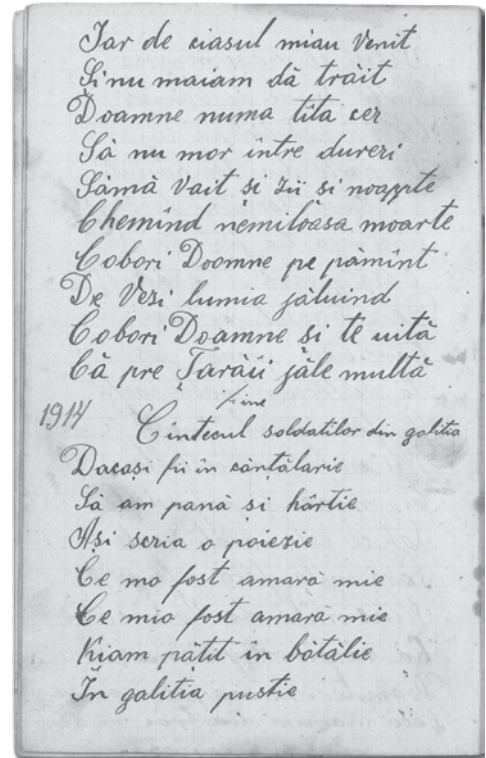 Iar de ciasul miau Venit
Și nu maiam dă trăit
Doamne numa tîta cer
Să nu mor între dureri
Sămă Vait si zii si noapte
Chemind nemiloasa moarte
Cobori Doomne pe pămint
De Vezi lumia jăluind
Cobori Doamne si te uită
Că pre Țarăii jăle multă
fine
1914 Cintecul soldatilor din galitia
Dacași fii in cănțălarie
Să am pană si hârtie
Ași scria o poiezie
Ce mo fost amară mie
Ce mio fost amară mie
Kiam pățit in bătălie
În galitia pustie